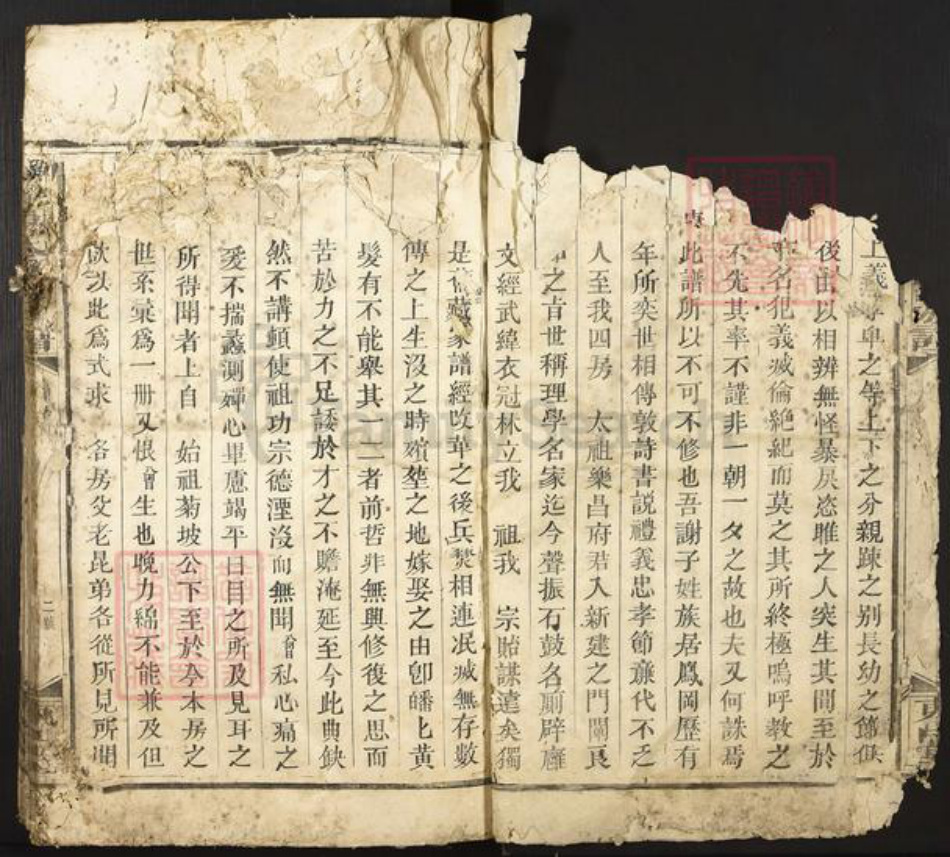 尊卑之等上下之分親踈之别長幼之節俱
後由以相辨無怪暴戾恣睢之人突生其間至於
名犯義滅倫絶紀而莫之其所終極嗚呼教之
不先其率不謹非一朝一夕之故也夫又何誅焉
此譜所以不可不修也吾謝子姓族居鳳岡歷有
年所奕世相傳敦詩書説禮義忠孝節亷代不乏
人至我四房 太祖樂昌府君入新建之門闈良
之旨世稱理學名家迄今聲振石鼓名廟辟廱
文經武緯衣冠林立我 祖我 宗貽謀遠矣獨
是舊藏家譜經改革之後兵焚相連泯滅無存數
傳之上生没之時殯塟之地嫁娶之由卽皤皤黄
髪有不能舉其一二者前哲非無興修復之思而
苦於力之不足諉於才之不贍淹延至今此典缺
然不講頓使祖功宗德湮没而無聞曾私心痛之
爰不揣蠡測殫心畢慮竭平日目之所及見耳之
所得聞者上自 始祖菊坡公下至於今本房之
世系彙爲一册又恨曾生也晚力綿不能兼及但
欲以此爲式求 各房父老昆弟各從所見所聞
二號